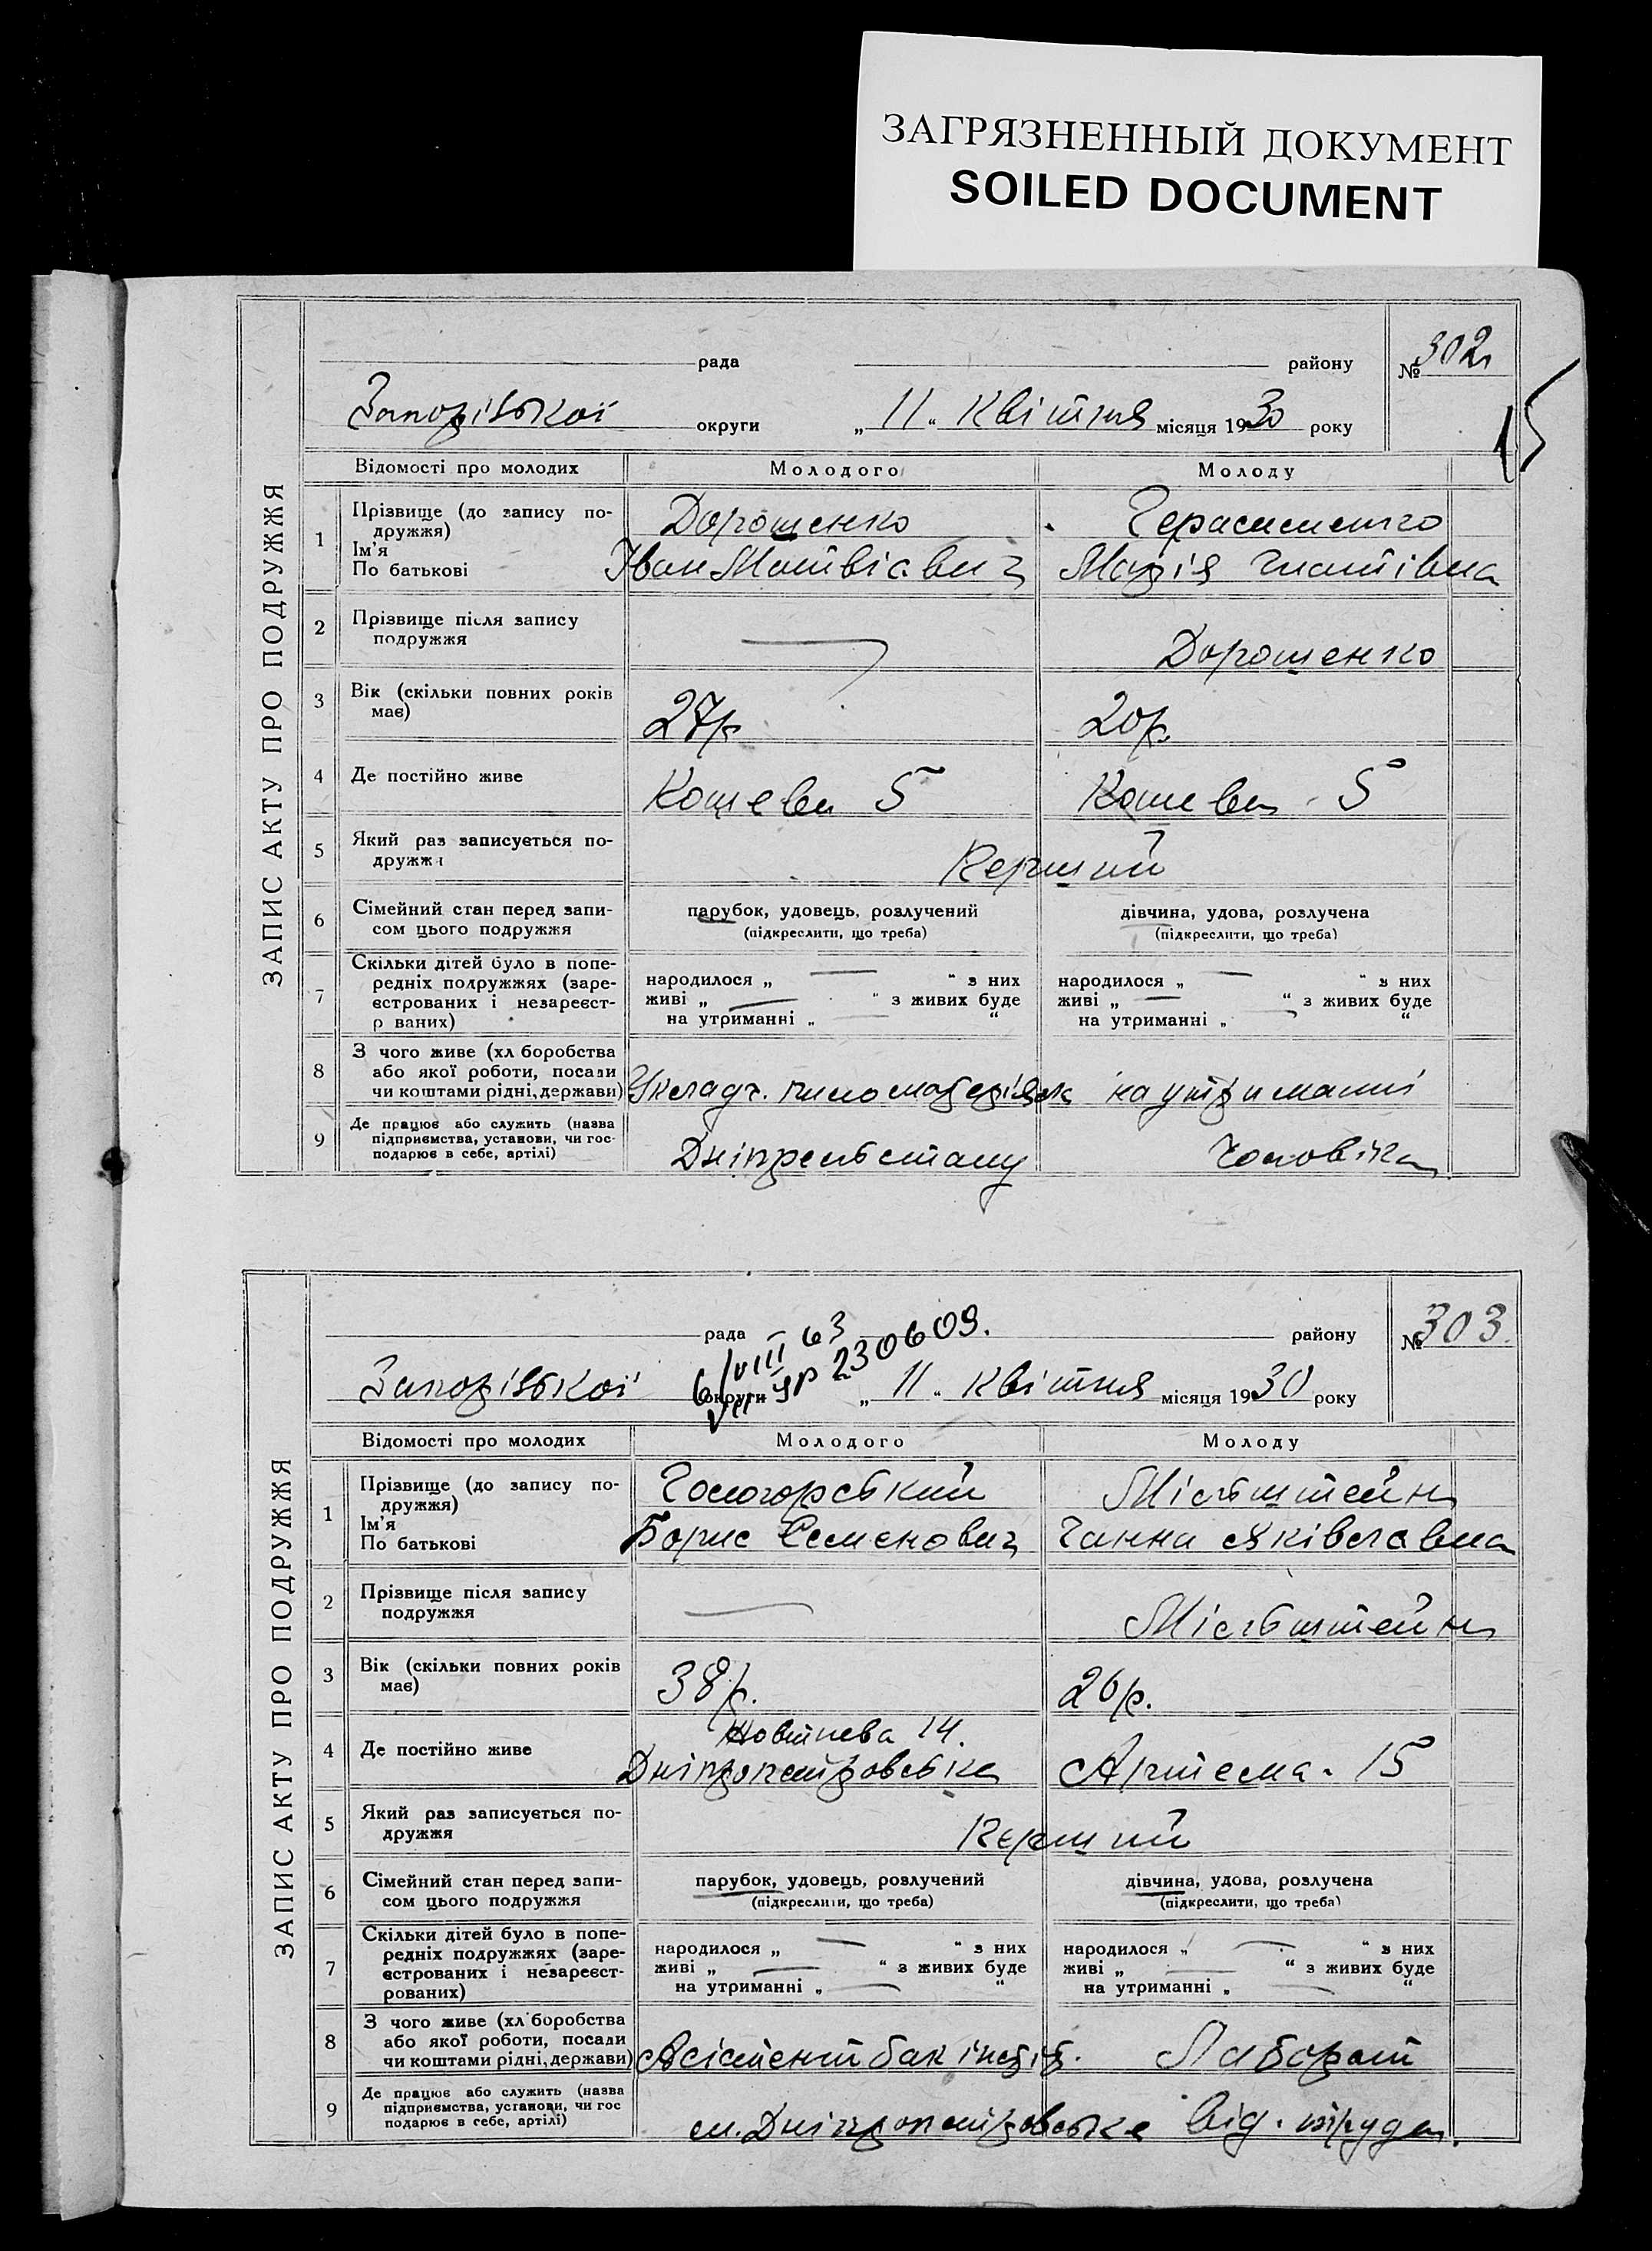 ЗАГРЯЗНЕННЫЙ ДОКУМЕНТ
SOILED DOCUMENT
ЗАПИС АКТУ ПРО ПОДРУЖЖЯ
рада району № 302
Запорізької округи „ 11 “ Квітня місяця 1930 року
15
Відомості про молодих Молодого Молоду
1 Прізвище (до запису по-
дружжя) Дорошенко Герасименко
Ім'я
По батькові Іван Матвієвич Марія Гнатівна
2 Прізвище після запису
подружжя — Дорошенко
3 Вік (скільки повних років
має) 27 р. 20 р.
4 Де постійно живе Кошева 5 Кошева 5
5 Який раз записується по-
дружжя Перший
6 Сімейний стан перед запи-
сом цього подружжя
парубок, удовець, розлучений
(підкреслити, що треба)
дівчина, удова, розлучена
(підкреслити, що треба)
7 Скільки дітей було в попе-
редніх подружжях (заре-
єстрованих і незареєст-
р ваних)
народилося „ — “ з них
живі „ — “ з живих буде
на утриманні „ — “
народилося „ — “ з них
живі „ — “ з живих буде
на утриманні „ — “
8 З чого живе (хл боробства
або якої роботи, посади
чи коштами рідні, держави) на утриманні
9 Де працює або служить (назва
підприємства, установи, чи гос-
подарює в себе, артілі) Дніпрельстану Чоловіка
ЗАПИС АКТУ ПРО ПОДРУЖЖЯ
рада району № 303.
6/VIII 63
УР 230609.
Запорізької округи „ 11 “ Квітня місяця 1930 року
Відомості про молодих Молодого Молоду
1 Прізвище (до запису по-
дружжя) Гологорський Мільштейн
Ім'я
По батькові Борис Семенович Ганна Яківлєвна
2 Прізвище після запису
подружжя — Мільштейн
3 Вік (скільки повних років
має) 38 р. 26 р.
4 Де постійно живе 14.
Дніпропетровська Артема - 15
5 Який раз записується по-
дружжя Перший
6 Сімейний стан перед запи-
сом цього подружжя
парубок, удовець, розлучений
(підкреслити, що треба)
дівчина, удова, розлучена
(підкреслити, що треба)
7 Скільки дітей було в попе-
редніх подружжях (заре-
єстрованих і незареєст-
рованих)
народилося „ — “ з них
живі „ — “ з живих буде
на утриманні „ — “
народилося „ — “ з них
живі „ — “ з живих буде
на утриманні „ — “
8 З чого живе (хл боробства
або якої роботи, посади
чи коштами рідні, держави) Асістент бак Лаборат
9 Де працює або служить (назва
підприємства, установи, чи гос
подарює в себе, артілі) м. Дніпропетровське від. труда.